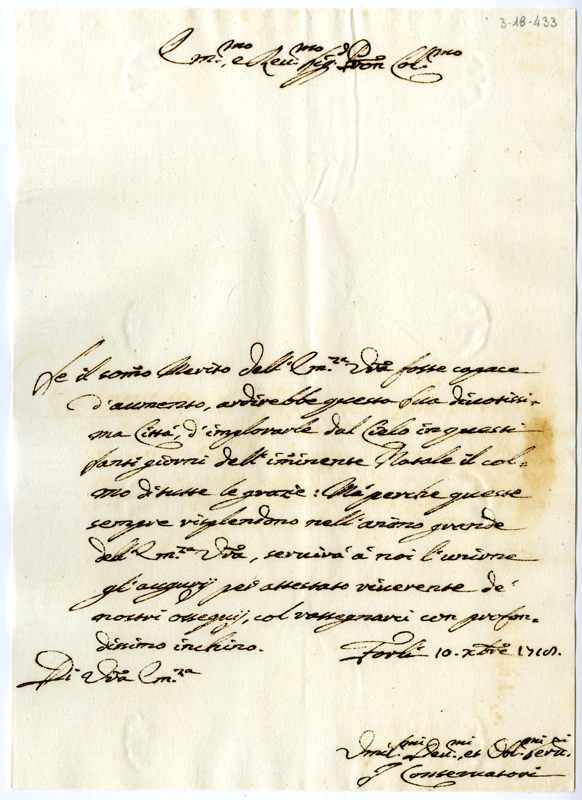 3-18-433
Em.mo, e Reu.mo Sig.r P.ron Col.mo
Se il som̃o Merito dell'Em.za Vr̃a fosse capace
d'aumento, ardirebbe questa sua diuotissi-
ma Città, d'implorarle dal Cielo in questi
santi giorni dell'im̃inente Natale il col-
mo di tutte le grazie: Mà perche queste
sempre risplendono nell'animo grande
dell'Em.za Vr̃a, seruirà à noi l'unirne
gli augurij per attestato riuerente de'
nostri ossequij, col rassegnarci con profon-
dissimo inchino.
Forlì 10. xbre 1718.
Di Vr̃a Em.za
Vmil.mi Deu.mi, et Obl.mi Seru.ri
I Conseruatori